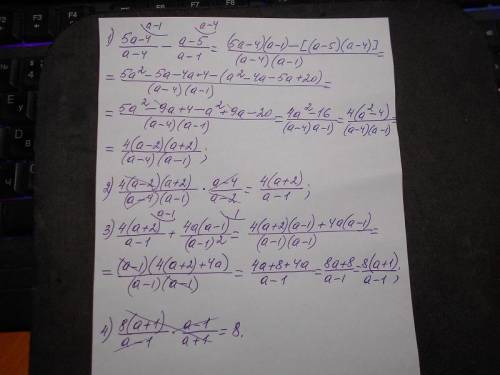 a-1 a-4
1) (5a-4)/(a-4) - (a-5)/(a-1) = ((5a-4)(a-1)-[(a-5)(a-4)])/((a-4)(a-1)) =
= (5a²-5a-4a+4-(a²-4a-5a+20))/((a-4)(a-1)) =
= (5a²-9a+4-a²+9a-20)/((a-4)(a-1)) = (4a²-16)/((a-4)(a-1)) = (4(a²-4))/((a-4)(a-1)) =
= (4(a-2)(a+2))/((a-4)(a-1));
2) (4(a-2)(a+2))/((a-4)(a-1)) · (a-4)/(a-2) = (4(a+2))/(a-1);
a-1 1
3) (4(a+2))/(a-1) + (4a(a-1))/((a-1)²) = (4(a+2)(a-1)+4a(a-1))/((a-1)(a-1)) =
= ((a-1)(4(a+2)+4a))/((a-1)(a-1)) = (4a+8+4a)/(a-1) = (8a+8)/(a-1) = (8(a+1))/(a-1);
4) (8(a+1))/(a-1) · (a-1)/(a+1) = 8.